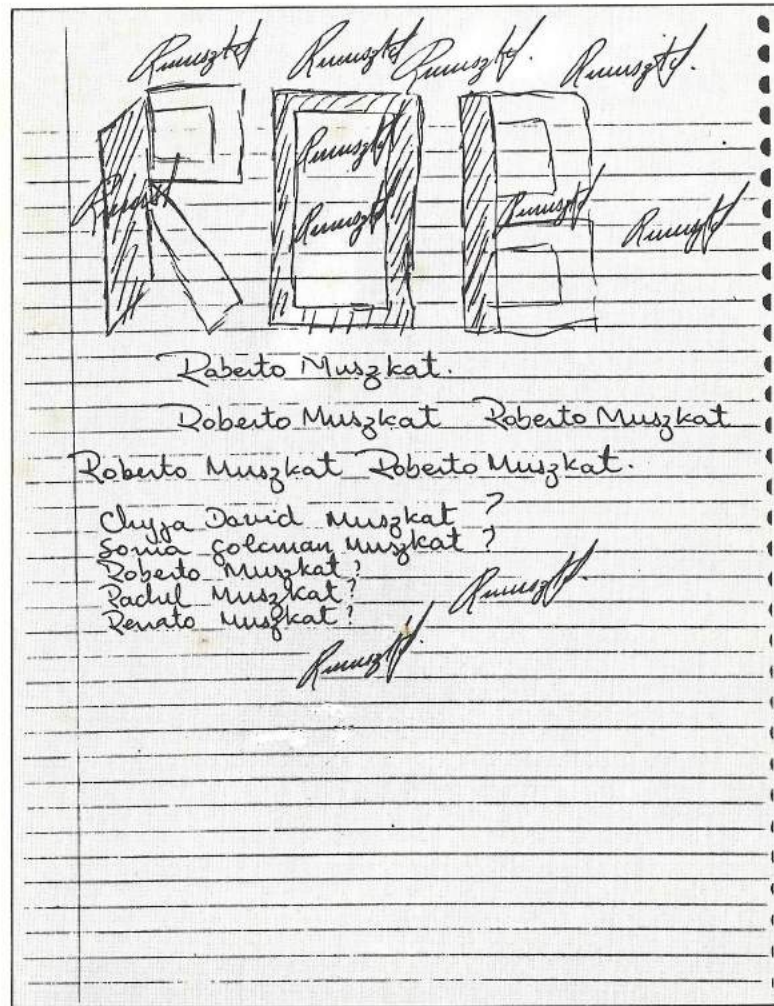 Rmuszkt Rmuszkt Rmuszkt. Rmuszkt
ROB
Rmuszkt
Rmuszkt
Rmuszkt Rmuszkt Rmuszkt
Roberto Muszkat.
Roberto Muszkat Roberto Muszkat
Roberto Muszkat Roberto Muszkat.
Chyja David Muszkat ?
Sonia Golcman Muszkat ?
Roberto Muszkat ?
Rachel Muszkat ?
Renato Muszkat ?
Rmuszkt.
Rmuszkt.